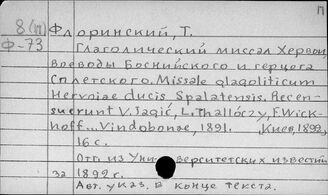 П
8(М) Флоринский, Т.
Ф-73 Глаголический миссал Хервои,
воеводы Боснийского и герцога
Сплетского. Missale glagoliticum
Hervoiae ducis Spalatensis. Recen-
suerunt V. Jagić, L. Thallóczy, F. Wick-
hoff... Vindobonae, 1891. Киев, 1892,
16 с.
Отт. из Университетских известий
за 1892 г.
Авт. указ. в конце текста.